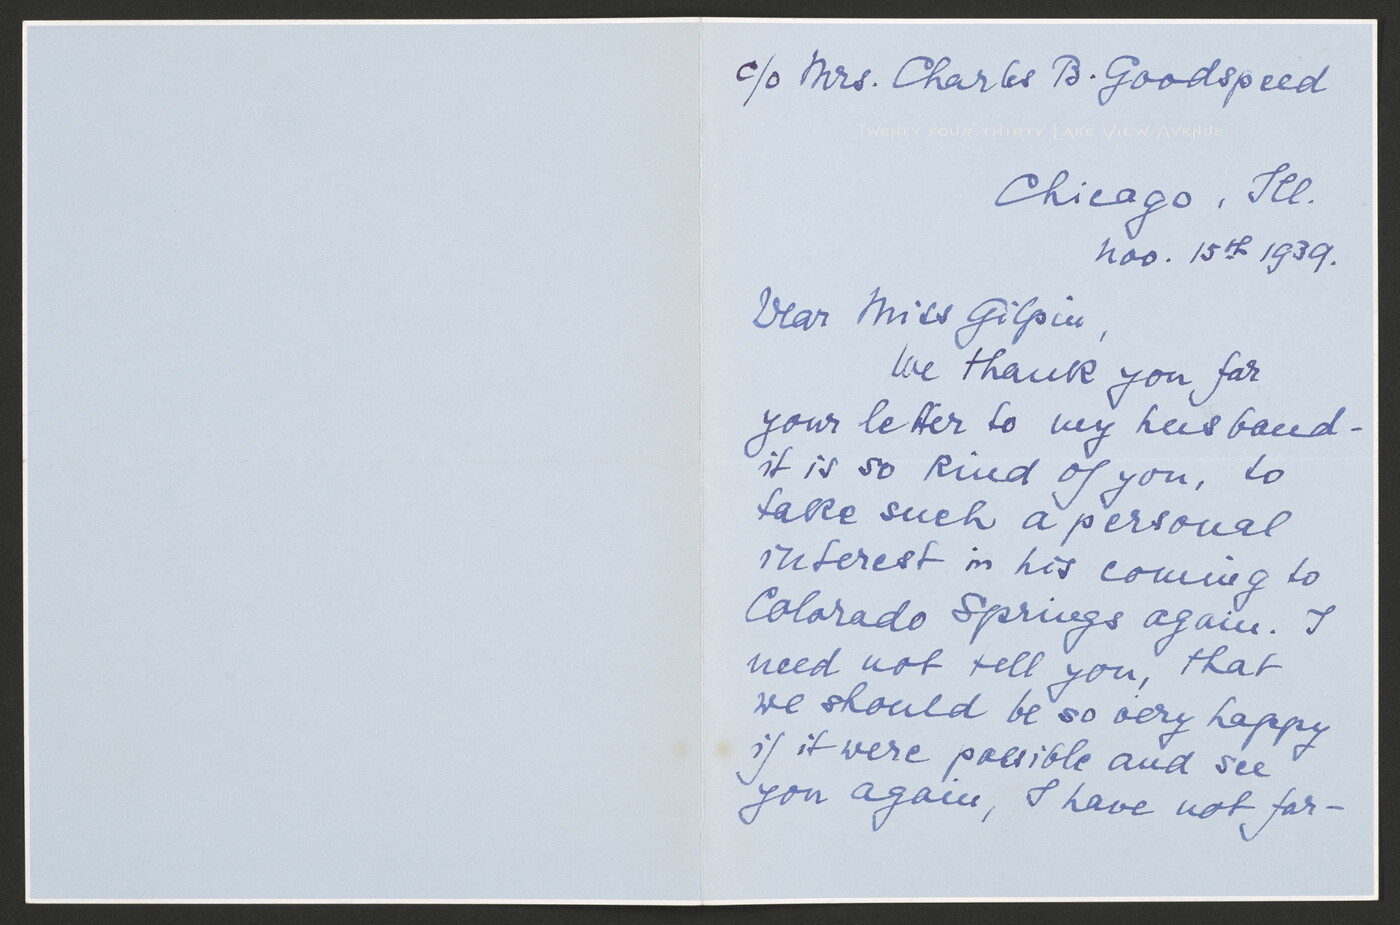 c/o Mrs. Charles B. Goodspeed
TWENTY FOUR THIRTY LAKE VIEW AVENUE
Chicago, Ill.
Nov. 15th 1939.
Dear Miss Gilpin,
We thank you for
your letter to my husband-
it is so kind of you, to
take such a personal
interest in his coming to
Colorado Springs again. I
need not tell you, that
we should be so very happy
if it were possible and see
you again, I have not for-